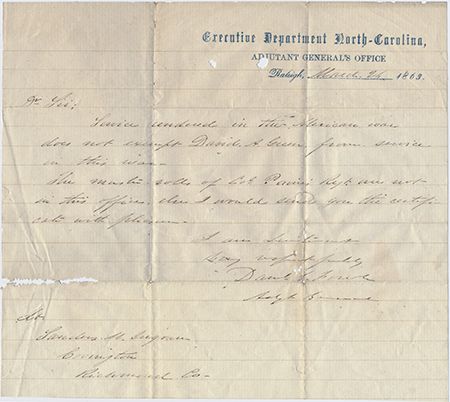 Executive Department North-Carolina,
ADJUTANT GENERAL'S OFFICE
Raleigh, March 24 1863.
Dr Sir;
Service rendered in the Mexican war
does not exempt David A. Green from service
in this war.
The muster rolls of Col Paine's Regt. are not
in this office, else I would send you the certifi-
cate with pleasure.
I am Lieutenant
Very respectfully
Danl G. Fowle
Adjt General
To
Sanders M. Ingram
Covington
Richmond Co-